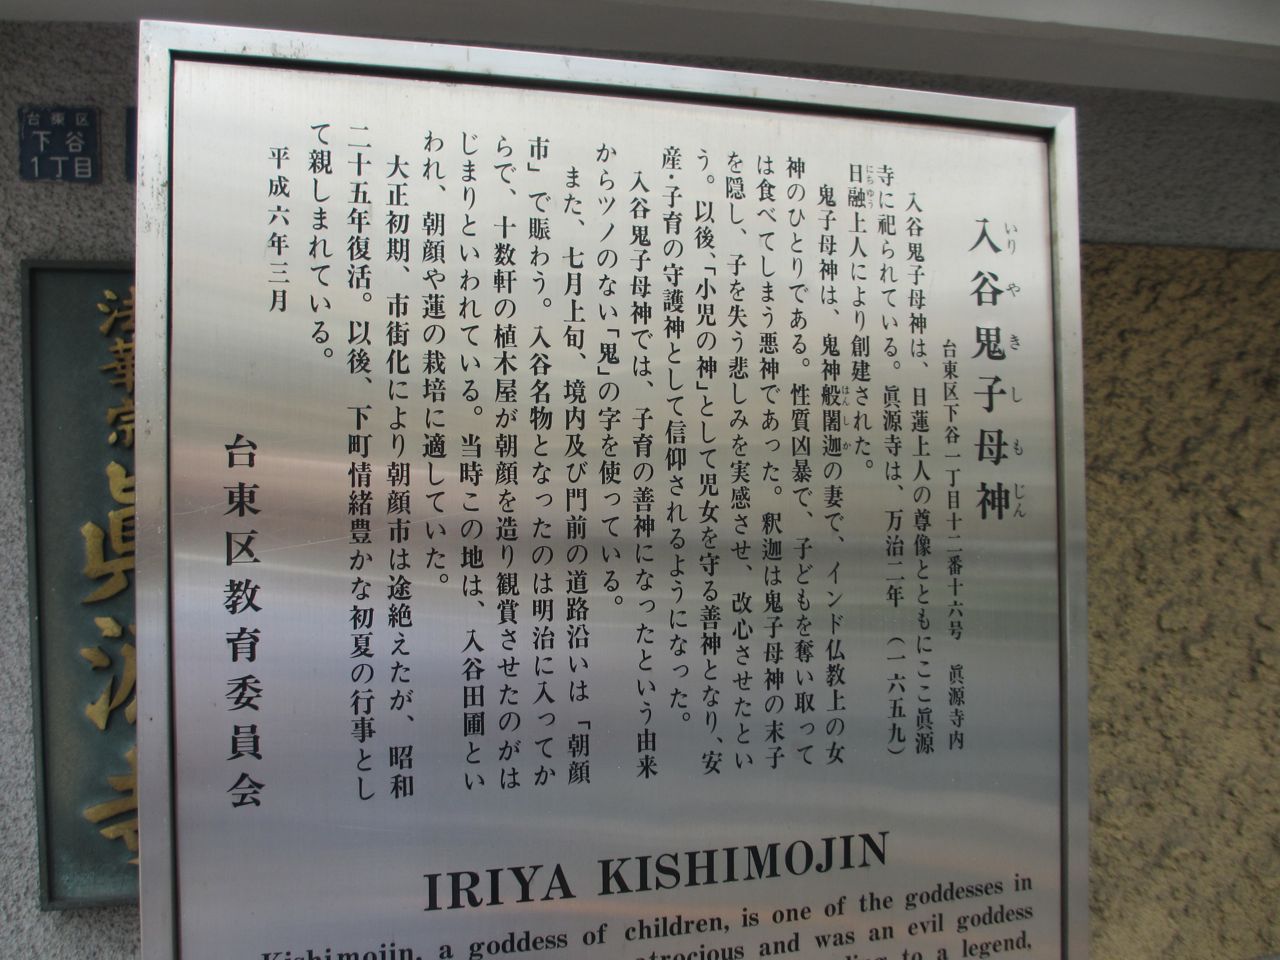 台東区
下谷
1丁目
法華宗
眞源寺
入谷鬼子母神
いりやきしもじん
台東区下谷一丁目十二番十六号　眞源寺内
入谷鬼子母神は、日蓮上人の尊像とともにここ眞源
寺に祀られている。眞源寺は、万治二年（一六五九）
日融上人により創建された。
にちゆう
鬼子母神は、鬼神般闍迦の妻で、インド仏教上の女
はんしか
神のひとりである。性質凶暴で、子どもを奪い取って
は食べてしまう悪神であった。釈迦は鬼子母神の末子
を隠し、子を失う悲しみを実感させ、改心させたとい
う。以後、「小児の神」として児女を守る善神となり、安
産・子育の守護神として信仰されるようになった。
入谷鬼子母神では、子育の善神になったという由来
からツノのない「鬼」の字を使っている。
また、七月上旬、境内及び門前の道路沿いは「朝顔
市」で賑わう。入谷名物となったのは明治に入ってか
らで、十数軒の植木屋が朝顔を造り観賞させたのがは
じまりといわれている。当時この地は、入谷田圃とい
われ、朝顔や蓮の栽培に適していた。
大正初期、市街化により朝顔市は途絶えたが、昭和
二十五年復活。以後、下町情緒豊かな初夏の行事とし
て親しまれている。
平成六年三月
台東区教育委員会
IRIYA KISHIMOJIN
Kishimojin, a goddess of children, is one of the goddesses in
atrocious and was an evil goddess
to a legend,